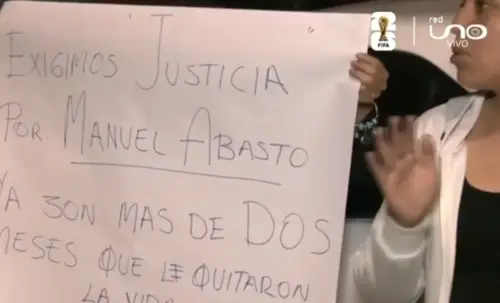 EXIGIMOS JUSTICIA
POR MANUEL ABASTO
YA SON MAS DE DOS
MESES QUE LE QUITARON
LA VIDA
FIFA
red
UNO
VIVO